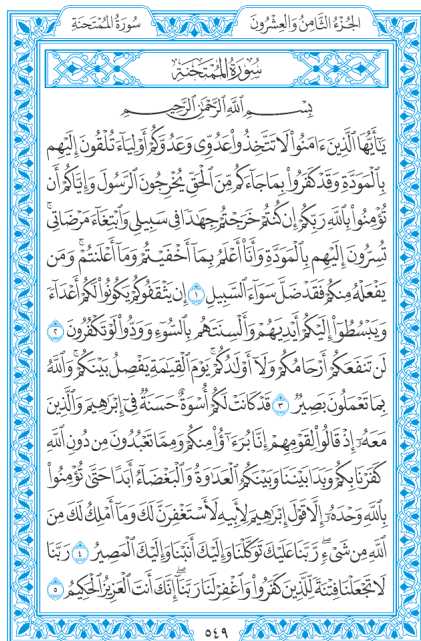 الجُزْءُ الثَّامِنُ وَالعِشْرُونَ
سُورَةُ المُمْتَحنَةِ
سُورَةُ المُمْتَحنَةِ
بِسْمِ اللَّهِ الرَّحْمَٰنِ الرَّحِيمِ
يَٰٓأَيُّهَا ٱلَّذِينَ ءَامَنُوا۟ لَا تَتَّخِذُوا۟ عَدُوِّى وَعَدُوَّكُمْ أَوْلِيَآءَ تُلْقُونَ إِلَيْهِم
بِٱلْمَوَدَّةِ وَقَدْ كَفَرُوا۟ بِمَا جَآءَكُم مِّنَ ٱلْحَقِّ يُخْرِجُونَ ٱلرَّسُولَ وَإِيَّاكُمْ أَن
تُؤْمِنُوا۟ بِٱللَّهِ رَبِّكُمْ إِن كُنتُمْ خَرَجْتُمْ جِهَٰدًا فِى سَبِيلِى وَٱبْتِغَآءَ مَرْضَاتِى ۚ
تُسِرُّونَ إِلَيْهِم بِٱلْمَوَدَّةِ وَأَنَا۠ أَعْلَمُ بِمَآ أَخْفَيْتُمْ وَمَآ أَعْلَنتُمْ ۚ وَمَن
يَفْعَلْهُ مِنكُمْ فَقَدْ ضَلَّ سَوَآءَ ٱلسَّبِيلِ ١ إِن يَثْقَفُوكُمْ يَكُونُوا۟ لَكُمْ أَعْدَآءً
وَيَبْسُطُوٓا۟ إِلَيْكُمْ أَيْدِيَهُمْ وَأَلْسِنَتَهُم بِٱلسُّوٓءِ وَوَدُّوا۟ لَوْ تَكْفُرُونَ ٢
لَن تَنفَعَكُمْ أَرْحَامُكُمْ وَلَآ أَوْلَٰدُكُمْ ۚ يَوْمَ ٱلْقِيَٰمَةِ يَفْصِلُ بَيْنَكُمْ ۚ وَٱللَّهُ
بِمَا تَعْمَلُونَ بَصِيرٌ ٣ قَدْ كَانَتْ لَكُمْ أُسْوَةٌ حَسَنَةٌ فِىٓ إِبْرَٰهِيمَ وَٱلَّذِينَ
مَعَهُۥٓ إِذْ قَالُوا۟ لِقَوْمِهِمْ إِنَّا بُرَءَٰٓؤُا۟ مِنكُمْ وَمِمَّا تَعْبُدُونَ مِن دُونِ ٱللَّهِ
كَفَرْنَا بِكُمْ وَبَدَا بَيْنَنَا وَبَيْنَكُمُ ٱلْعَدَٰوَةُ وَٱلْبَغْضَآءُ أَبَدًا حَتَّىٰ تُؤْمِنُوا۟
بِٱللَّهِ وَحْدَهُۥٓ إِلَّا قَوْلَ إِبْرَٰهِيمَ لِأَبِيهِ لَأَسْتَغْفِرَنَّ لَكَ وَمَآ أَمْلِكُ لَكَ مِنَ
ٱللَّهِ مِن شَىْءٍ ۖ رَّبَّنَا عَلَيْكَ تَوَكَّلْنَا وَإِلَيْكَ أَنَبْنَا وَإِلَيْكَ ٱلْمَصِيرُ ٤ رَبَّنَا
لَا تَجْعَلْنَا فِتْنَةً لِّلَّذِينَ كَفَرُوا۟ وَٱغْفِرْ لَنَا رَبَّنَآ ۖ إِنَّكَ أَنتَ ٱلْعَزِيزُ ٱلْحَكِيمُ ٥
٥٤٩